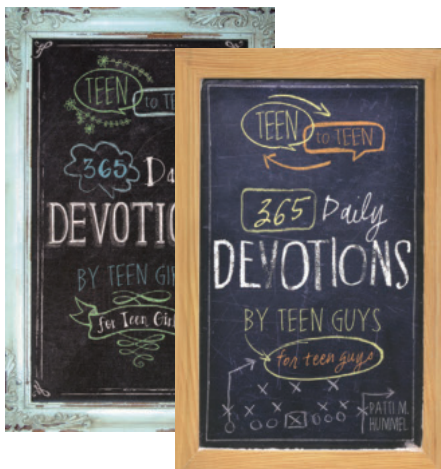 TEEN
to TE
365 Da
DEVOTIO
BY TEEN GI
for Teen Girl
TEEN
to TEEN
365 Daily
DEVOTIONS
BY TEEN GUYS
for teen guys
PATTI M.
HUMMEL